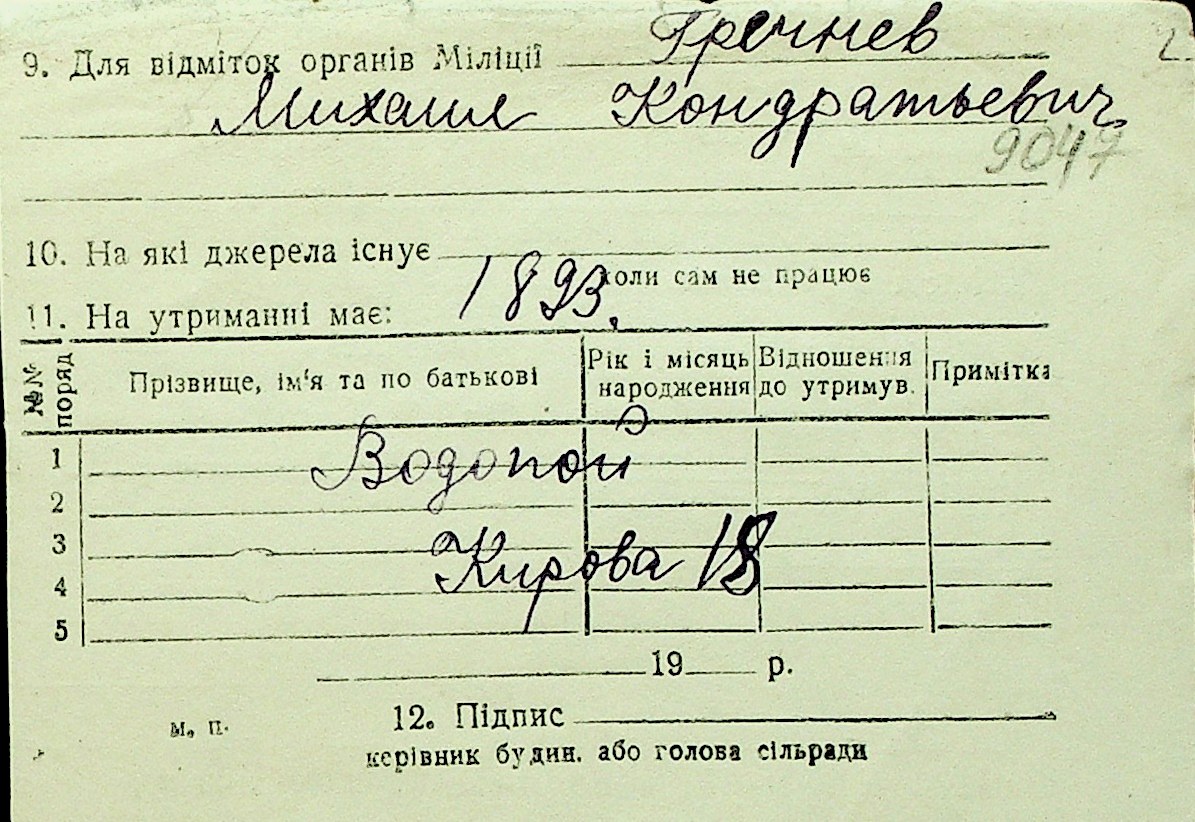 9. Для відміток органів Міліції Гречнев
Михаил Кондратьевич
9047
10. На які джерела існує
коли сам не працює
11. На утриманні має: 1893.
№№ поряд | Прізвище, ім'я та по батькові | Рік і місяць народження | Відношення до утримув. | Примітка
1 Водопой
2
3 Кирова 18
4
5
19 р.
м. п. 12. Підпис
керівник будин. або голова сільради